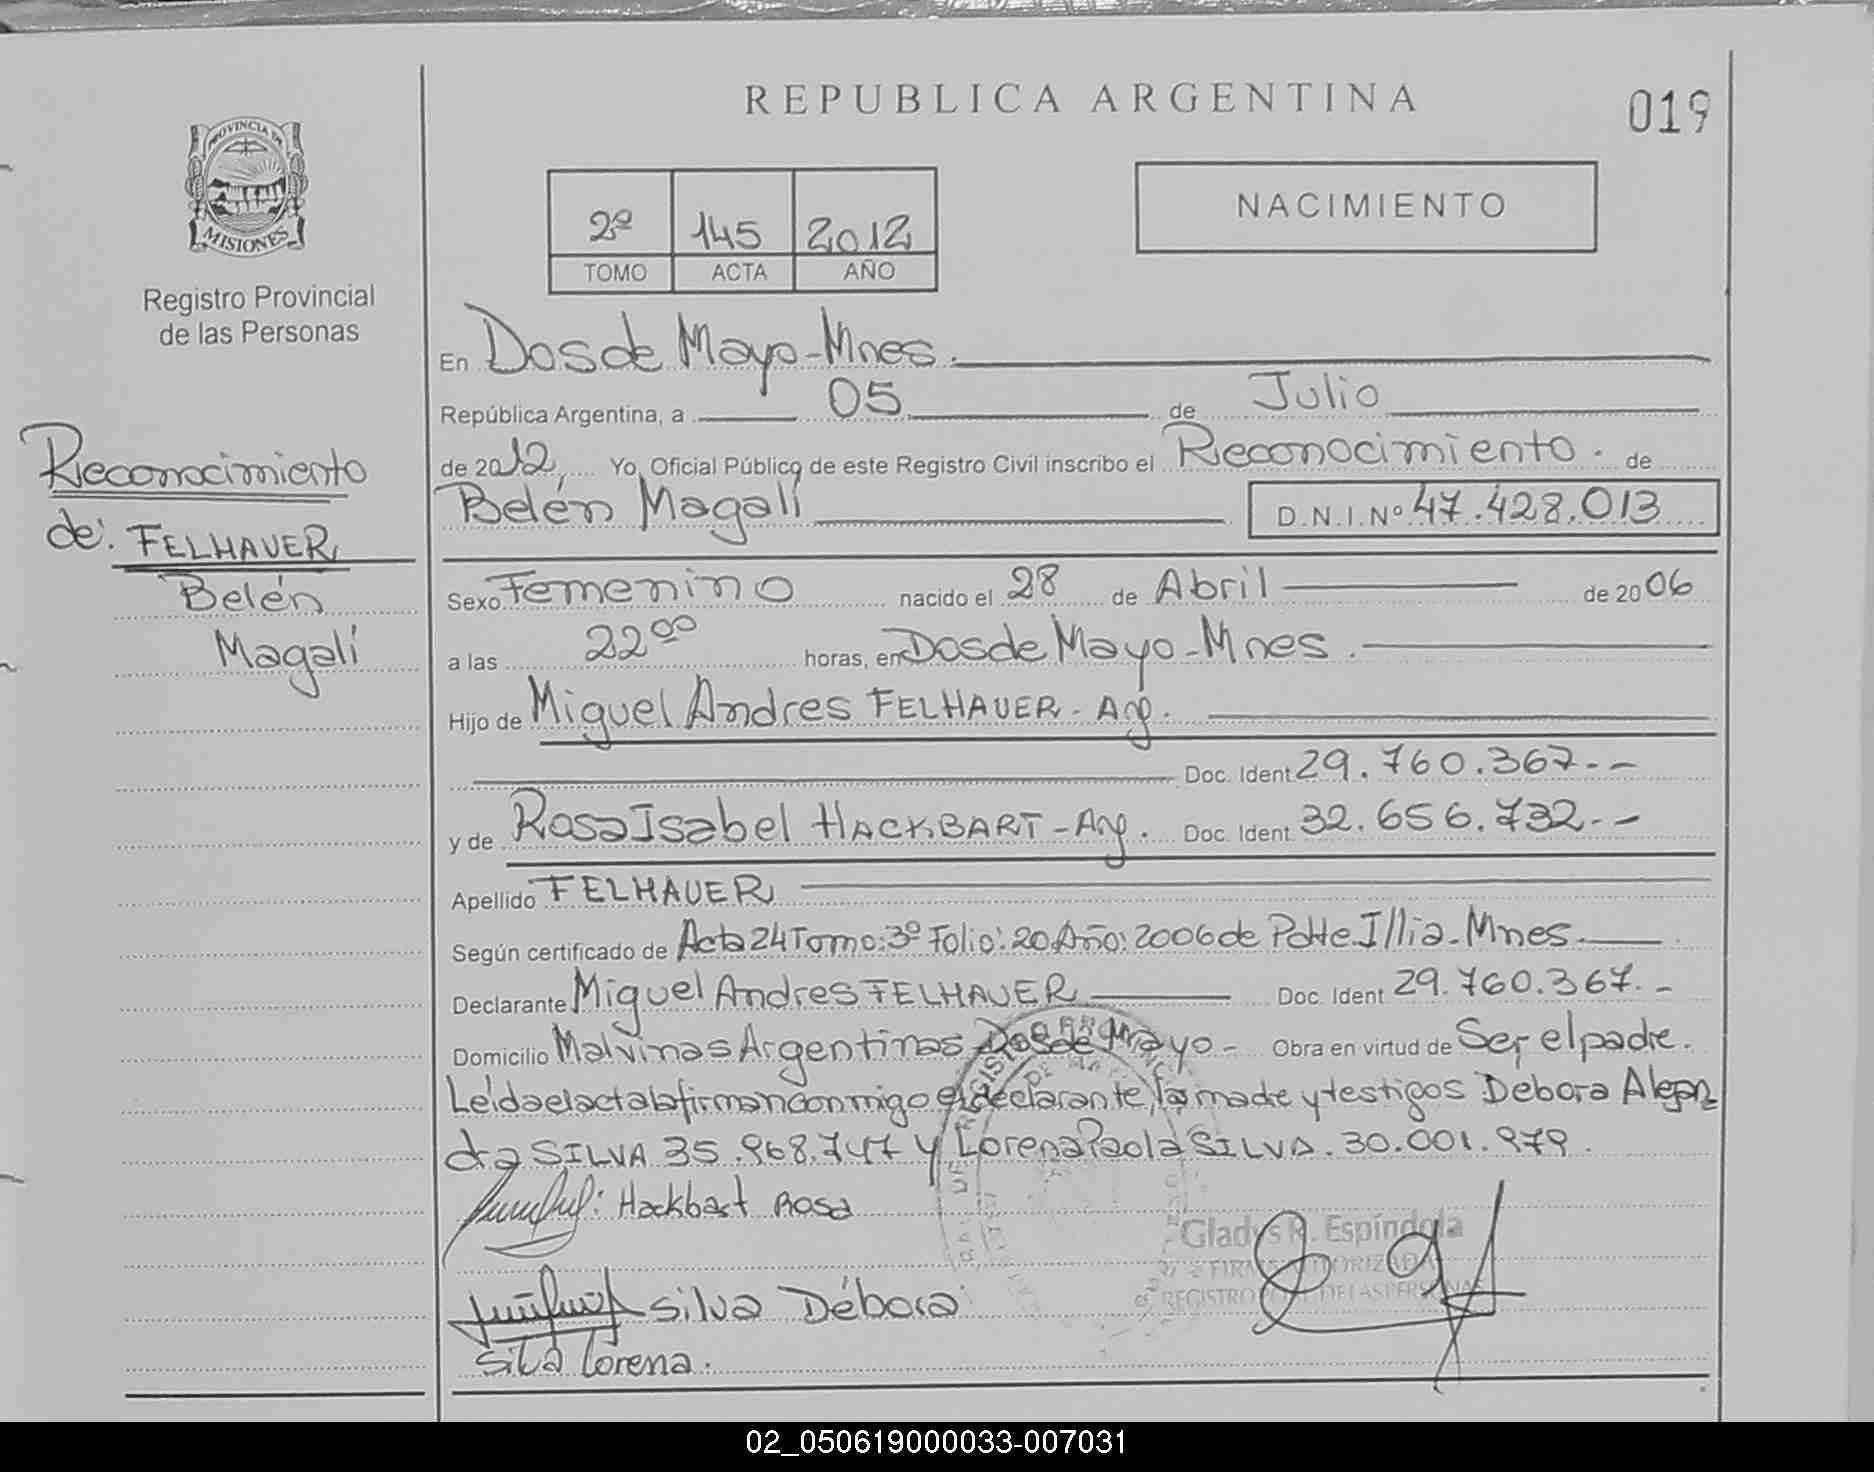 REPUBLICA ARGENTINA
019
PROVINCIA DE
MISIONES
Registro Provincial
de las Personas
2º 145 2012
TOMO ACTA AÑO
NACIMIENTO
En Dos de Mayo-Mnes.
República Argentina, a 05 de Julio
de 2012 Yo, Oficial Público de este Registro Civil inscribo el Reconocimiento. de
Belén Magalí D.N.I.Nº 47.428.013
Reconocimiento
de: FELHAUER
Belén
Magalí
Sexo Femenino nacido el 28 de Abril de 2006
a las 22ºº horas, en Dos de Mayo-Mnes.
Hijo de Miguel Andres FELHAUER-Arg.
Doc. Ident. 29.760.367.--
y de Rosa Isabel HACKBART-Arg. Doc. Ident. 32.656.732.--
Apellido FELHAUER
Según certificado de Acta 24 Tomo:3º Folio:20 Año:2006 de Pdte Illia-Mnes.
Declarante Miguel Andres FELHAUER Doc. Ident 29.760.367.-
Domicilio Malvinas Argentinas Dos de Mayo- Obra en virtud de Ser el padre.
Leída el acta la firman conmigo el declarante, la madre y testigos Debora Alejan
dra SILVA 35.968.747 y Lorena Paola SILVA. 30.001.979.
Hackbart Rosa
Gladys R. Espíndola
FIRMA AUTORIZADA
REGISTRO DE LAS PERSONAS
Silva Débora
Silva Lorena.
02_050619000033-007031